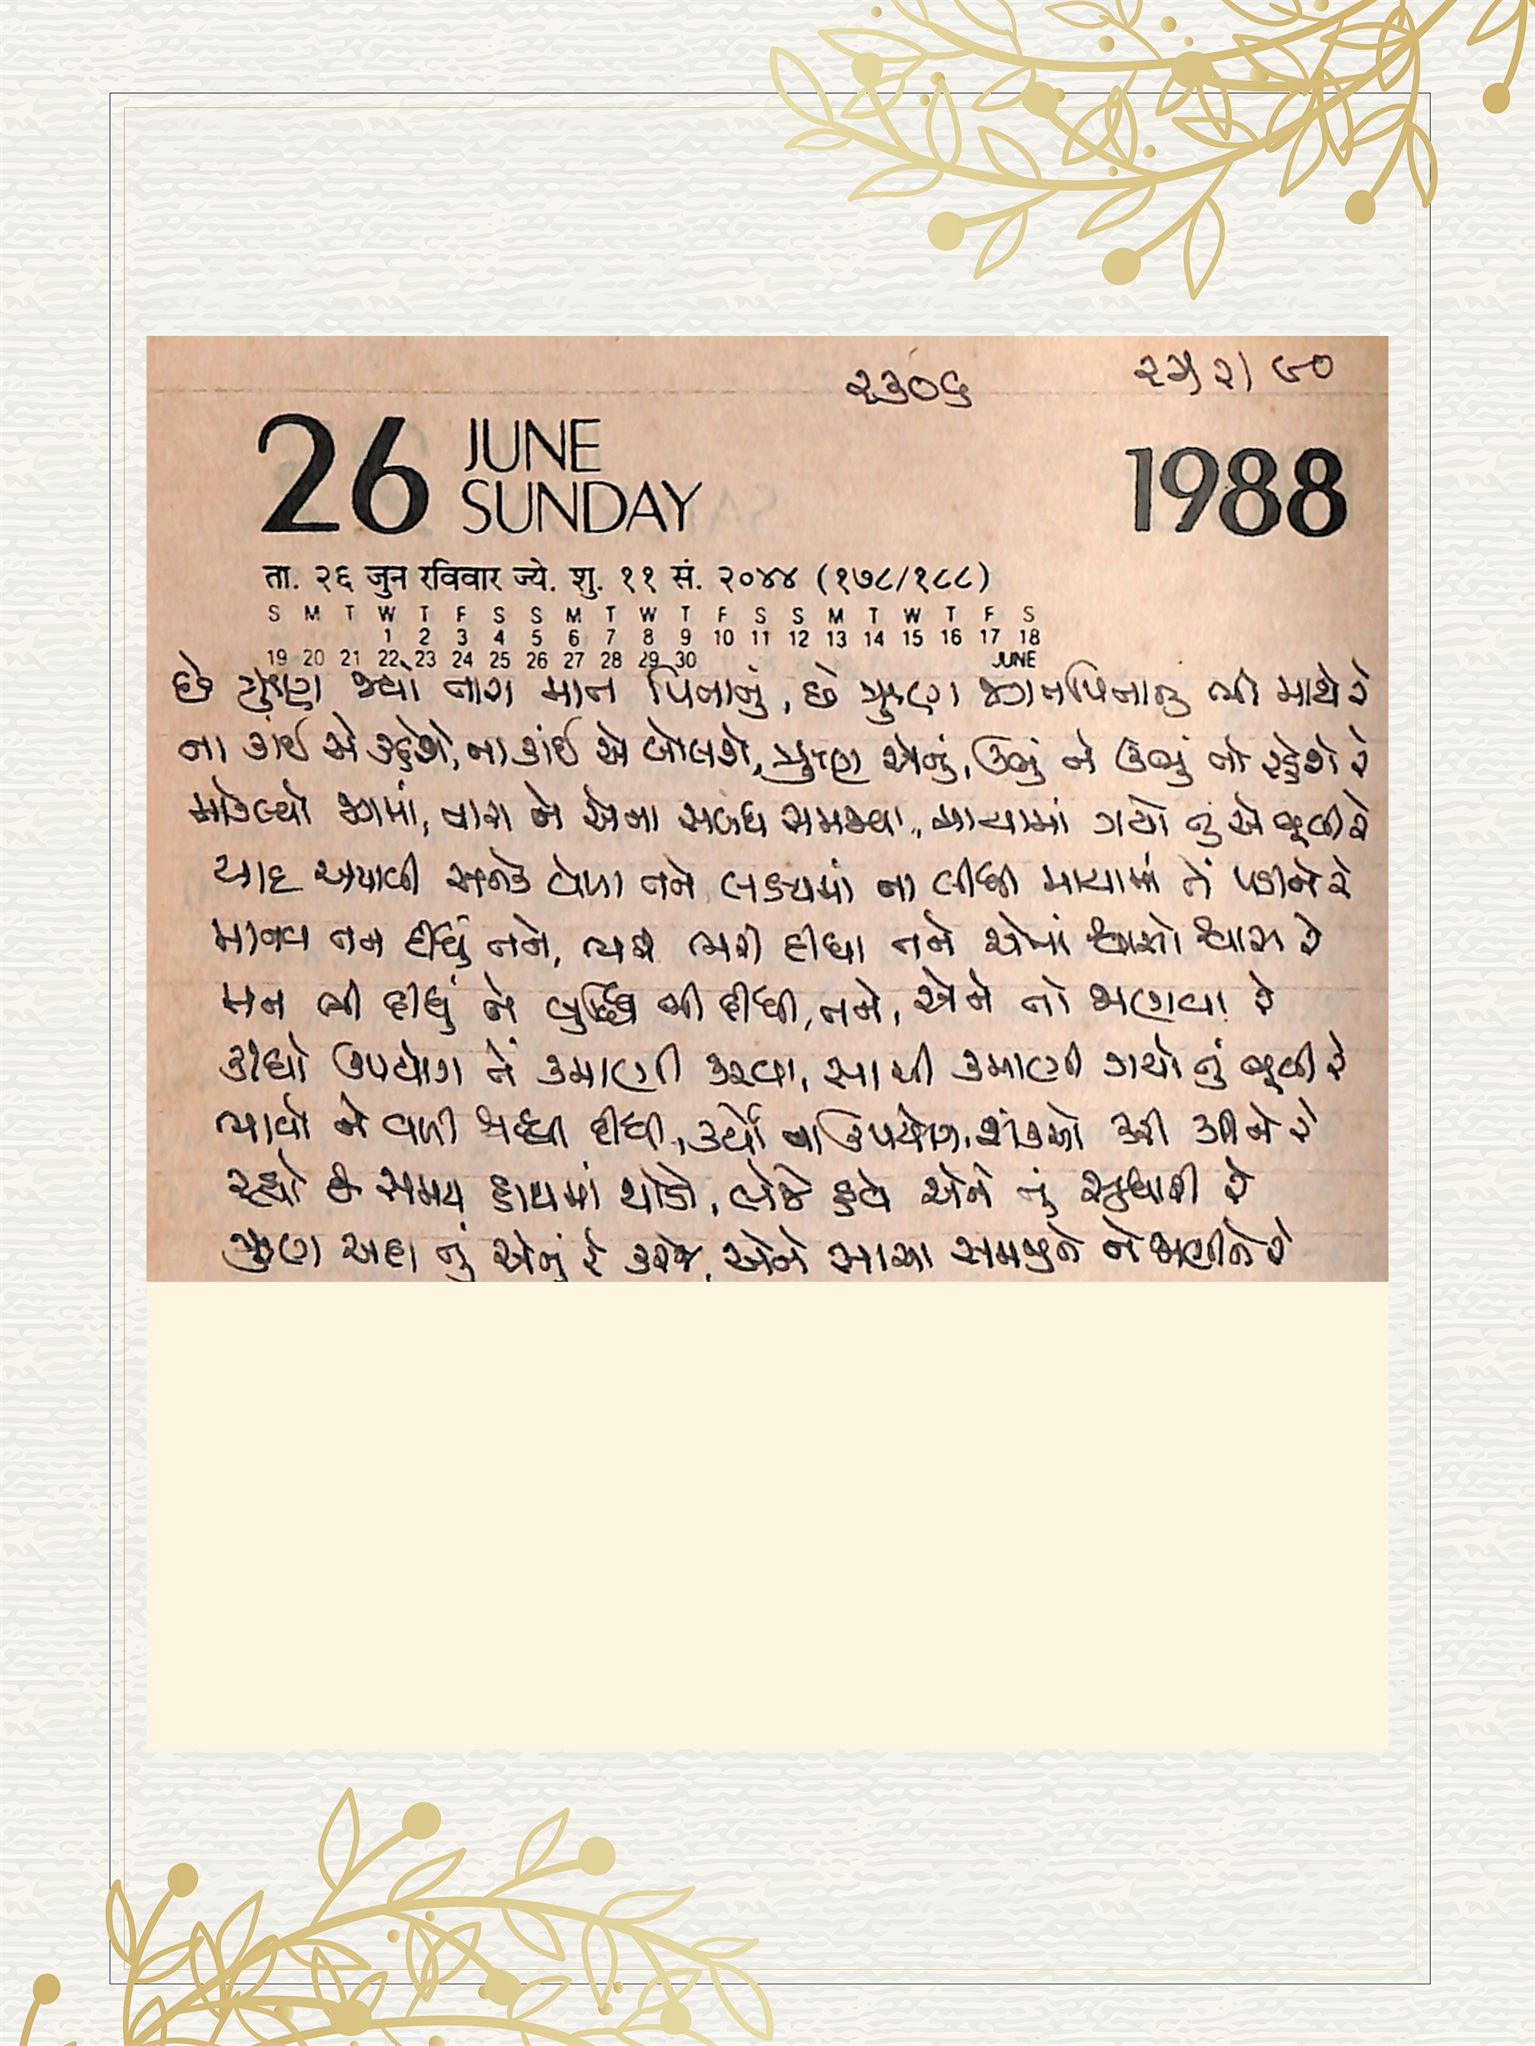 ૨૩૦૬
26 JUNE SUNDAY 1988
ता. २६ जुन रविवार ज्ये. शु. ११ सं. २०४४ (१७८/१८८)
S M T W T F S S M T W T F S S M T W T F S
1 2 3 4 5 6 7 8 9 10 11 12 13 14 15 16 17 18
19 20 21 22 23 24 25 26 27 28 29 30 JUNE
છે ઋણ જ્યાં તારા માત પિતાનું, છે ઋણ જગતપિતાનું ભી માથે રે
ના કાંઈ એ કહેશે, ના કાંઈ એ બોલશે, ઋણ એનું, ઊભું ને ઊભું તો રહેશે રે
મોકલ્યો જગમાં, તારા ને એના સબંધ સમજવા, માયામાં ગયો તું એ ભૂલી રે
યાદ અપાવી અનેક વેળા તને લક્ષ્યમાં ના લીધી માયામાં તેં પડીને રે
માનવ તન દીધું તને, ભરી દીધા તને એમાં શ્વાસો શ્વાસ રે
મન ભી દીધું ને બુદ્ધિ ભી દીધી, તને, એને તો જાણવા રે
કીધો ઉપયોગ તેં કમાણી કરવા, સાચી કમાણી ગયો તું ભૂલી રે
ભાવો ને વળી શ્રદ્ધા દીધી, કર્યો ના ઉપયોગ, શંકાઓ કરી કરીને રે
રહ્યો છે સમય હાથમાં થોડો, લેજે હવે એને તું સુધારી રે
ઋણ અદા તું એનું રે કરજે, એને સાચા સમજીને ને જાણીને રે